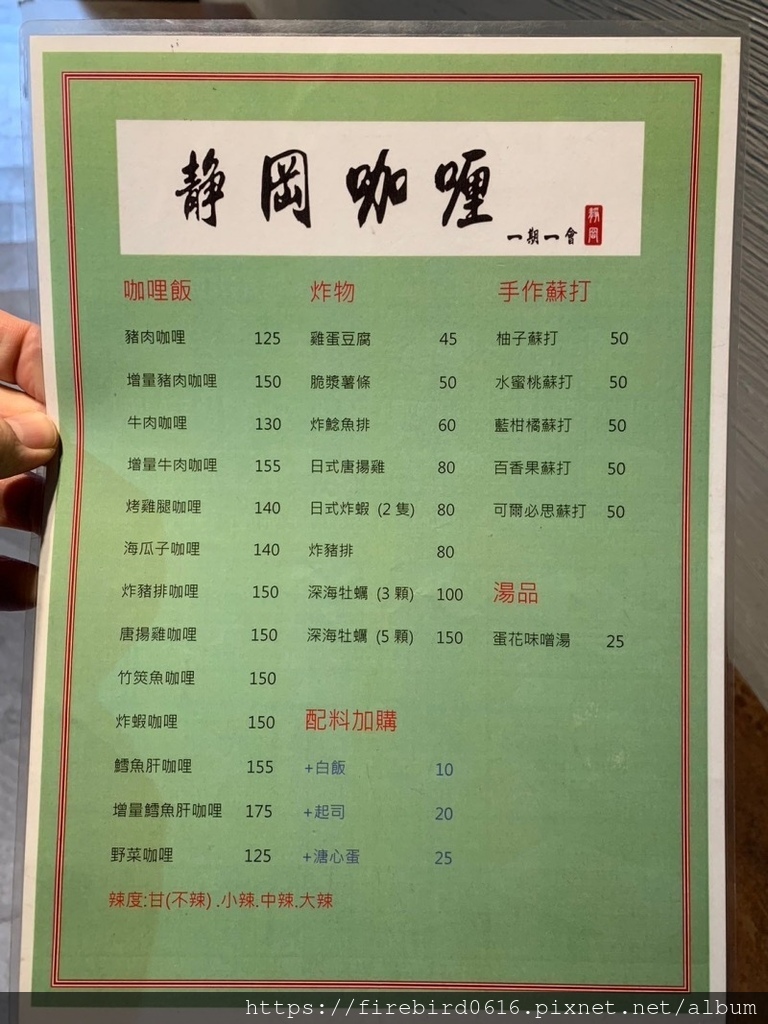 靜岡咖喱
一期一會
靜岡
咖哩飯
豬肉咖哩 125
增量豬肉咖哩 150
牛肉咖哩 130
增量牛肉咖哩 155
烤雞腿咖哩 140
海瓜子咖哩 140
炸豬排咖哩 150
唐揚雞咖哩 150
竹筴魚咖哩 150
炸蝦咖哩 150
鱈魚肝咖哩 155
增量鱈魚肝咖哩 175
野菜咖哩 125
辣度:甘(不辣) .小辣.中辣.大辣
炸物
雞蛋豆腐 45
脆漿薯條 50
炸鯰魚排 60
日式唐揚雞 80
日式炸蝦 (2 隻) 80
炸豬排 80
深海牡蠣 (3 顆) 100
深海牡蠣 (5 顆) 150
配料加購
+白飯 10
+起司 20
+溏心蛋 25
手作蘇打
柚子蘇打 50
水蜜桃蘇打 50
藍柑橘蘇打 50
百香果蘇打 50
可爾必思蘇打 50
湯品
蛋花味噌湯 25
https://firebird0616.pixnet.net/album